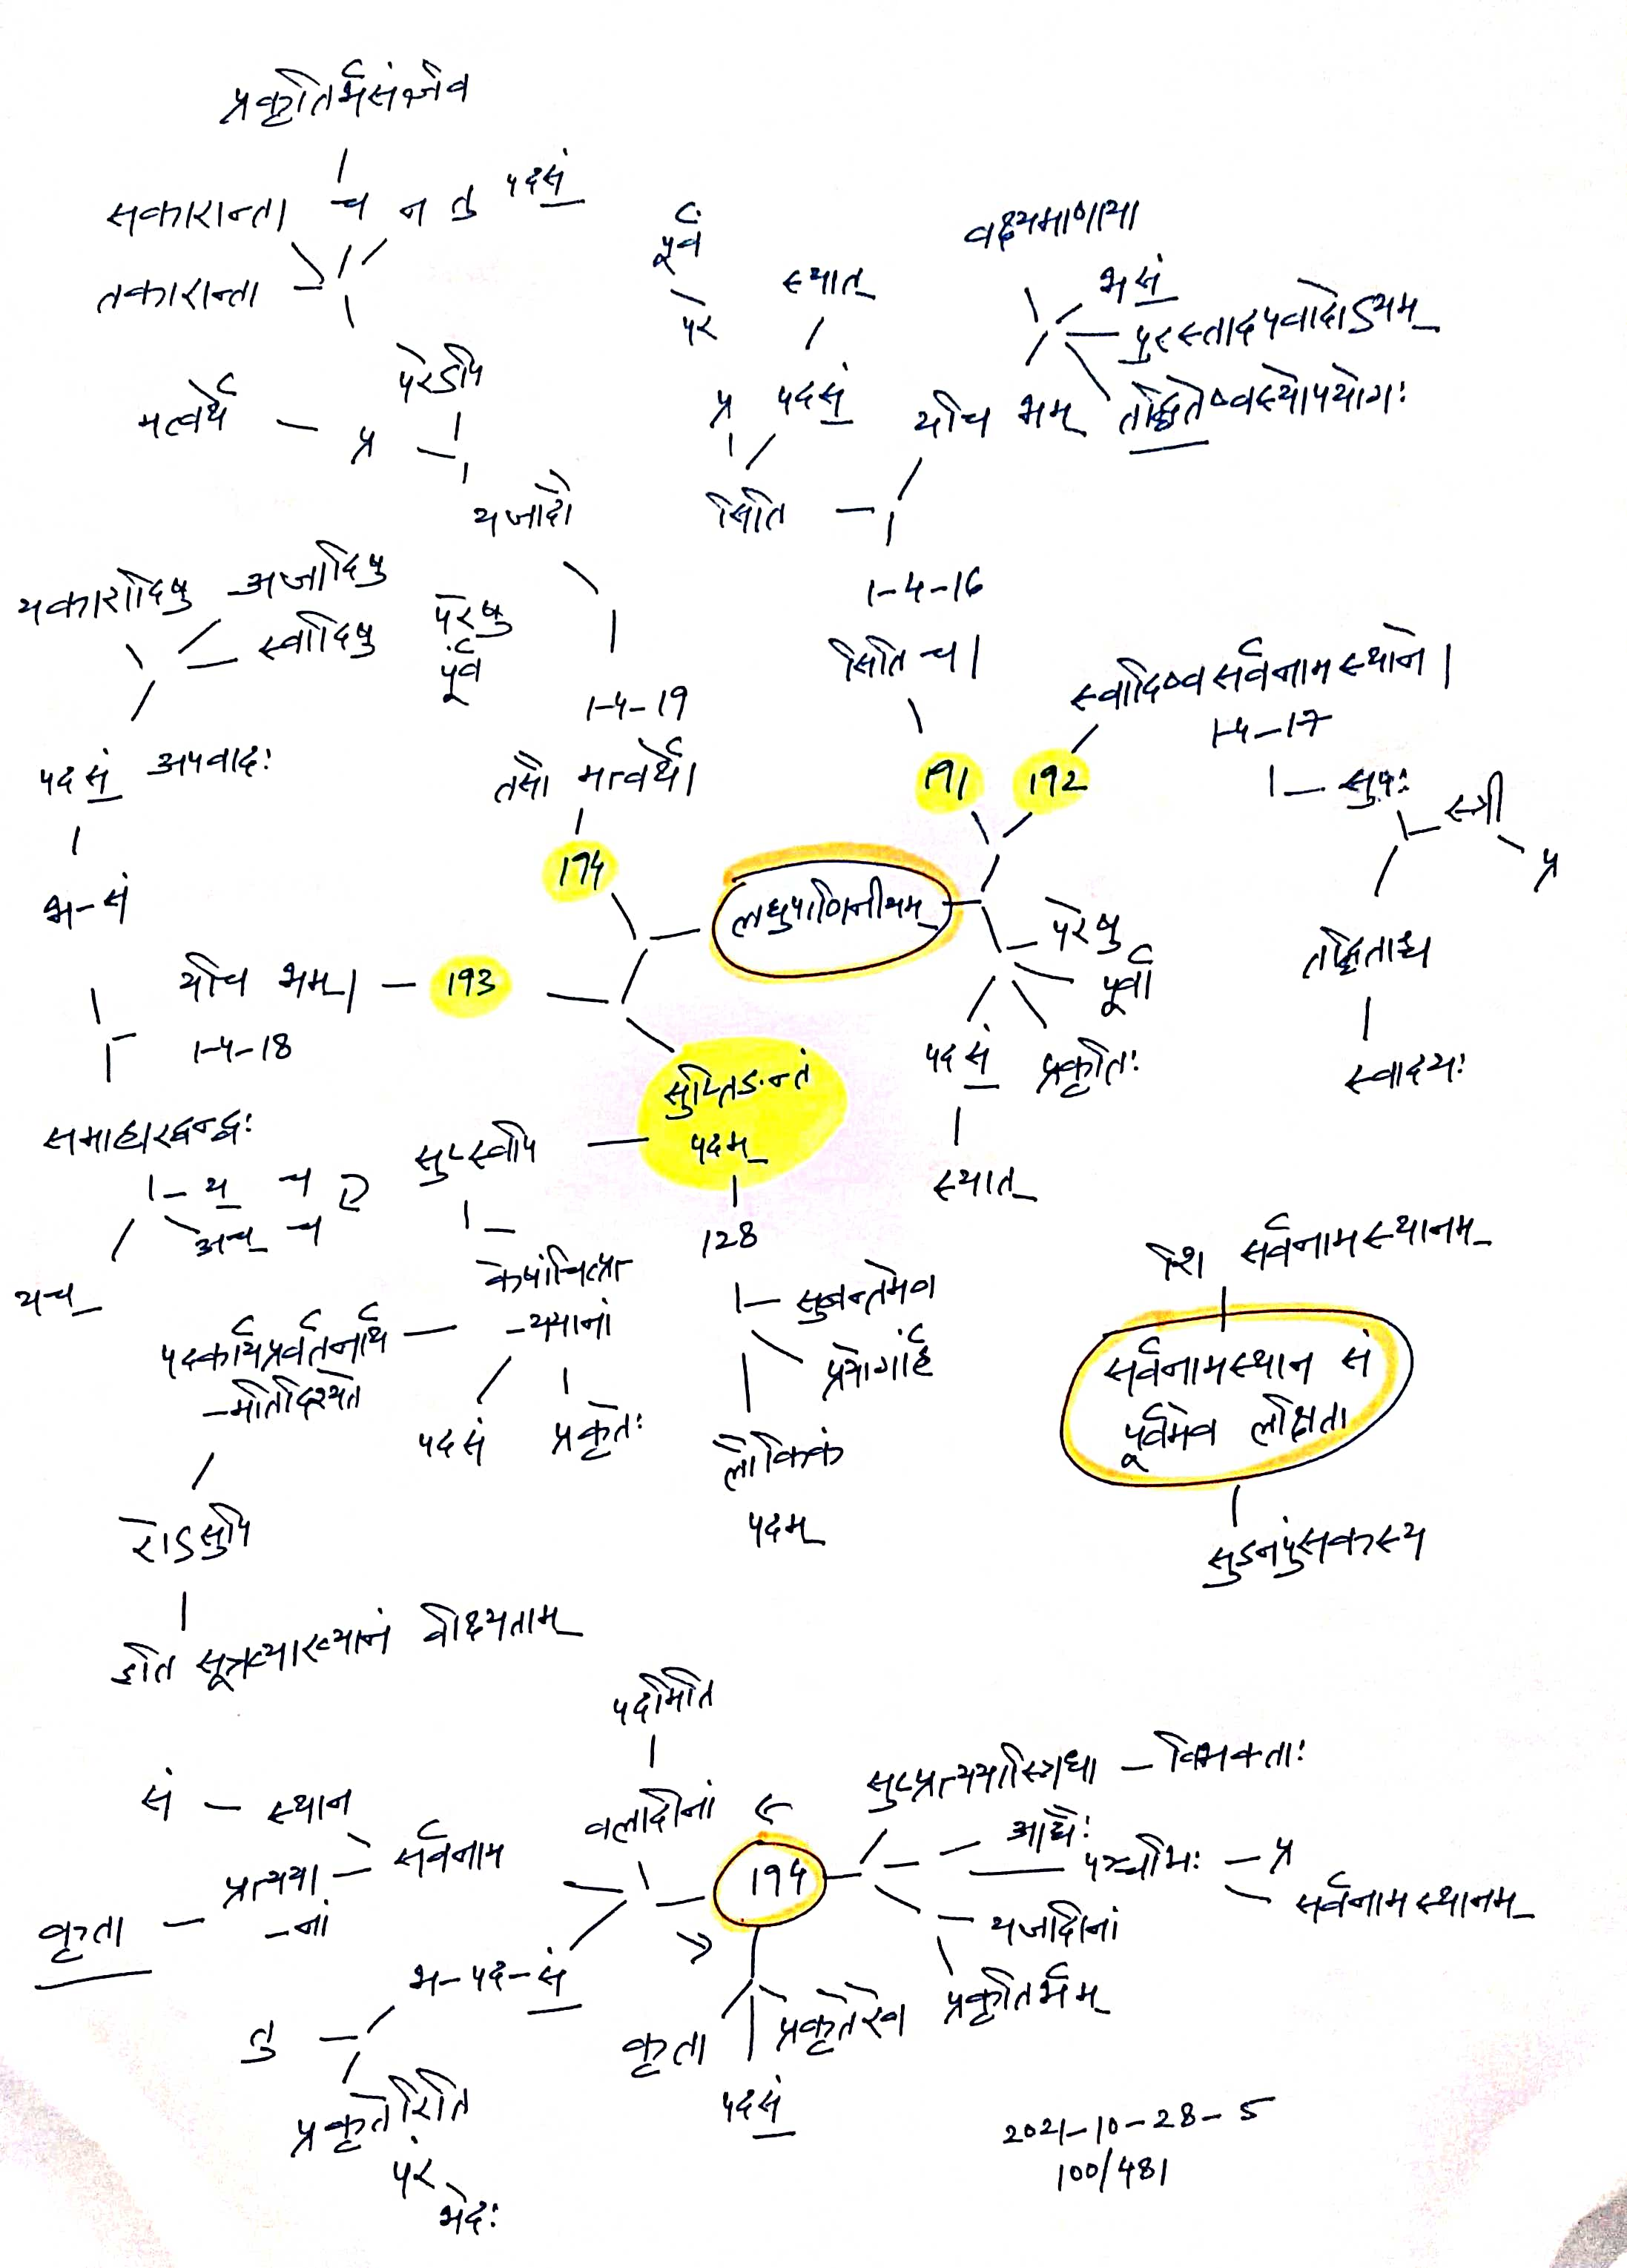 प्रकृतिर्भसंज्ञैव
सकारान्ता च न तु पदसं
तकारान्ता
पूर्वं
परे
स्यात्
वक्ष्यमाणाया
भसं
पुरस्तादपवादोऽयम्
मत्वर्थे
प्र
परेऽपि
प्र पदसं
यचि भम् तद्धितेष्वस्योपयोगः
यजादौ
सिति
1-4-16
यकारादिषु अजादिषु
स्वादिषु
परेषु
पूर्वं
सिति च।
स्वादिष्वसर्वनामस्थाने।
1-4-17
1-4-19
पदसं अपवादः
तसौ मत्वर्थे।
191
192
सुपः
स्त्री
प्र
194
भ-सं
लघुपाणिनीयम्
परेषु
पूर्वा
तद्धिताश्च
यचि भम्। 193
1-4-18
पदसं
प्रकृतिः
स्वादयः
सुप्तिङन्तं
पदम्
समाहारद्वन्द्वः
सुप्स्वपि
स्यात्
य च
अच् च
128
यच्
केषांचित्प्र
-त्ययानां
सुबन्तमेव
प्रयोगार्हं
शि सर्वनामस्थानम्
पदकार्यप्रवर्तनार्थ
-मतिदिश्यते
सर्वनामस्थान सं
पूर्वमेव लक्षिता
पदसं
प्रकृतेः
लौकिकं
पदम्
रोऽसुपि
सुडनपुंसकस्य
इति सूत्रव्याख्यानं वीक्ष्यताम्
पदमिति
सं स्थान
वलादीनां
सुप्प्रत्ययास्त्रिधा विभक्ताः
आद्यैः
पञ्चभिः प्र
सर्वनामस्थानम्
प्रत्यया
-नां
सर्वनाम
194
कृता
यजादीनां
भ-पद-सं
कृता प्रकृतेरेव प्रकृतिर्भम्
तु
पदसं
प्रकृतेरिति
परं
भेदः
2021-10-28-5
100/481